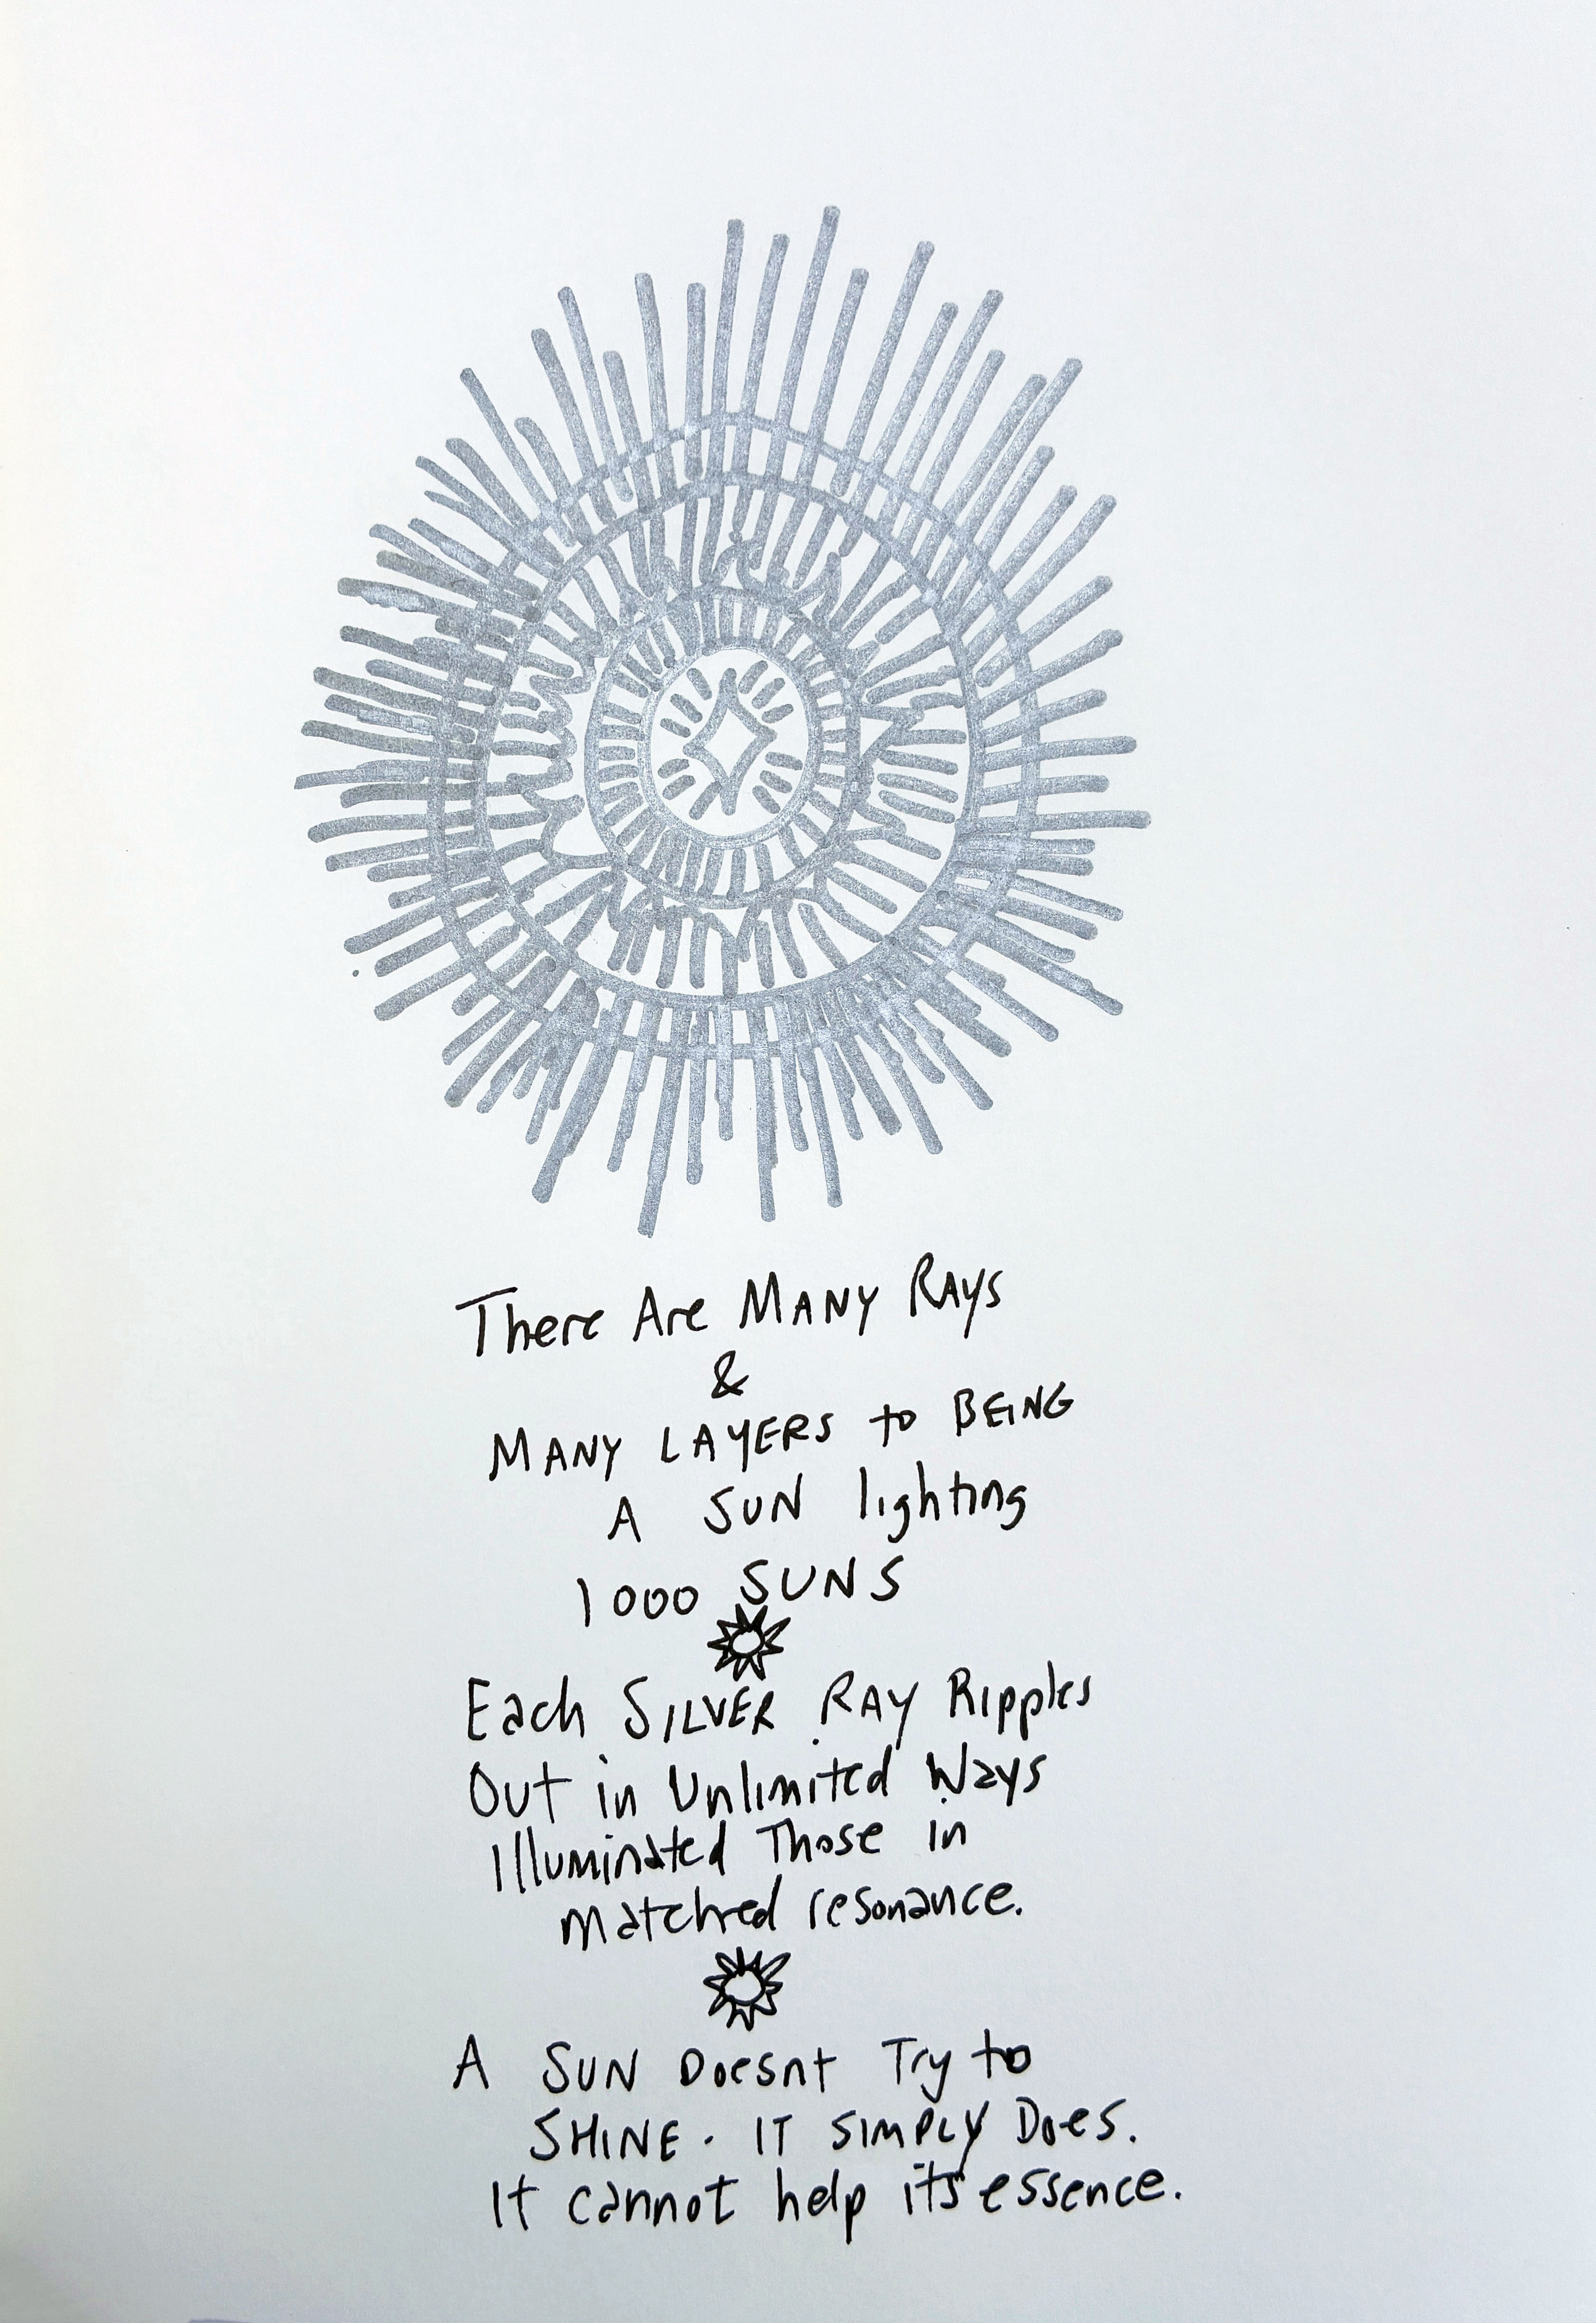 There Are MANY RAYS
&
MANY LAYERS to BEING
A SUN lighting
1000 SUNS
Each SILVER RAY Ripples
Out in Unlimited Ways
Illuminated Those in
matched resonance.
A SUN Doesnt Try to
SHINE. IT SIMPLY Does.
It cannot help its essence.